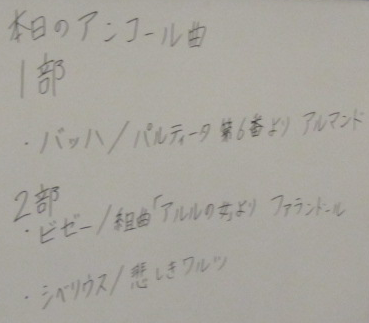 本日のアンコール曲
1部
・バッハ/パルティータ第6番より アルマンド
2部
・ビゼー/組曲「アルルの女」より ファランドール
・シベリウス/悲しきワルツ